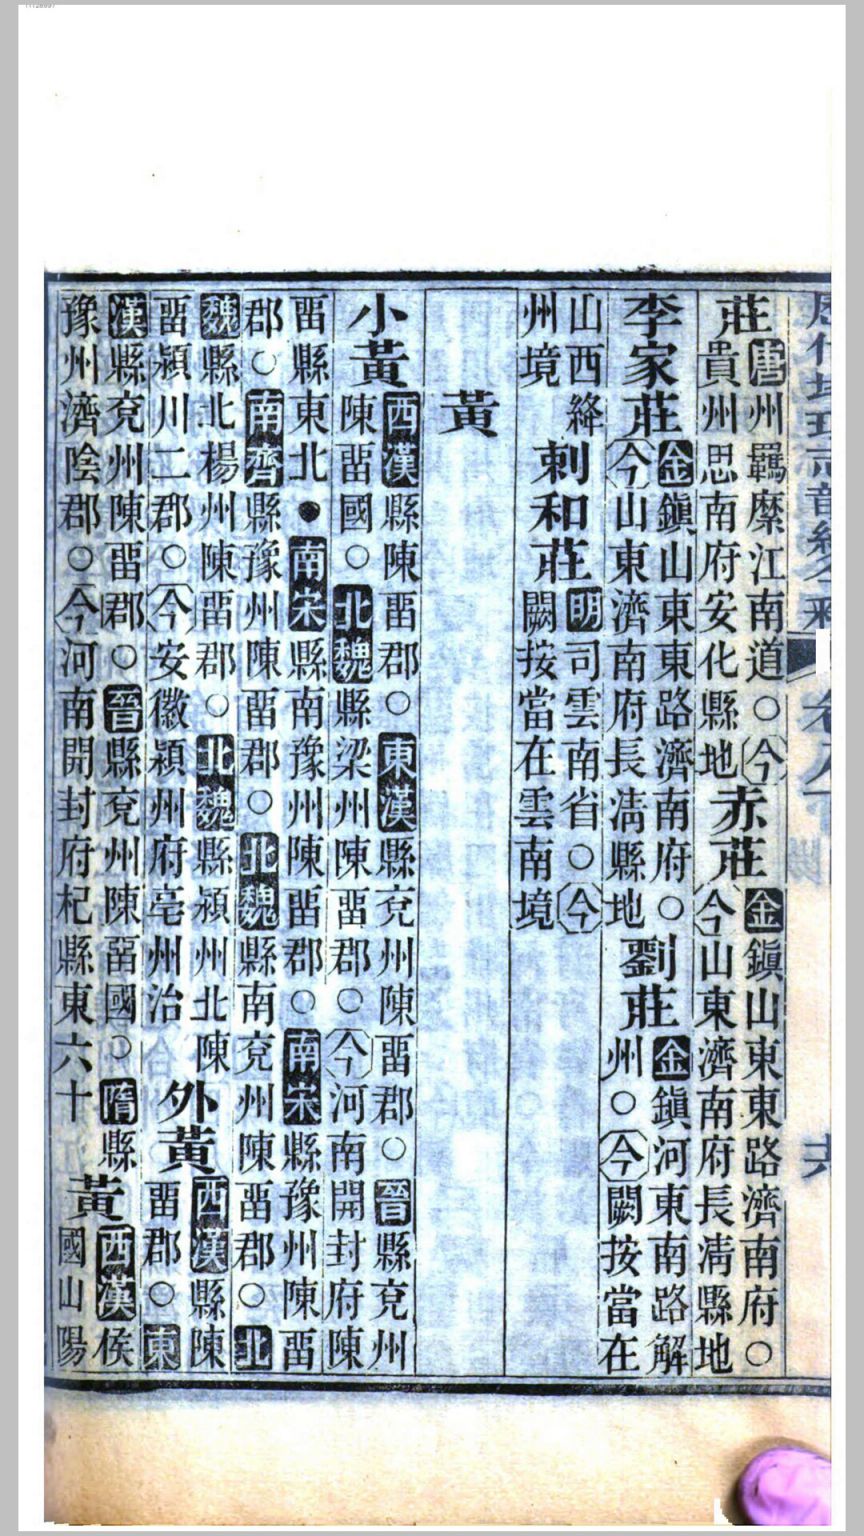 莊
唐州羈縻江南道○今
貴州思南府安化縣地
赤莊
金鎮山東東路濟南府○
今山東濟南府長淸縣地
李家莊
金鎮山東東路濟南府○
今山東濟南府長淸縣地
劉莊
金鎮河東南路解
州○今闕按當在
山西絳
州境
剌和莊
明司雲南省○今
闕按當在雲南境
黃
小黃
西漢縣陳畱郡○東漢縣兗州陳畱郡○晉縣兗州
陳畱國○北魏縣梁州陳畱郡○今河南開封府陳
畱縣東北●南宋縣南豫州陳畱郡○南宋縣豫州陳畱
郡○南齊縣豫州陳畱郡○北魏縣南兗州陳畱郡○北
魏縣北楊州陳畱郡○北魏縣潁州北陳
畱潁川二郡○今安徽潁州府亳州治
外黃
西漢縣陳
畱郡○東
漢縣兗州陳畱郡○晉縣兗州陳畱國○隋縣
豫州濟陰郡○今河南開封府杞縣東六十
黃
西漢侯
國山陽